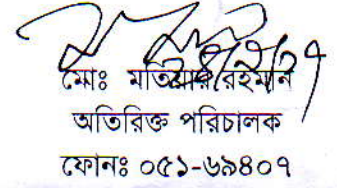 মোঃ মতিয়ার রহমান
অতিরিক্ত পরিচালক
ফোনঃ ০৫১-৬৯৪০৭